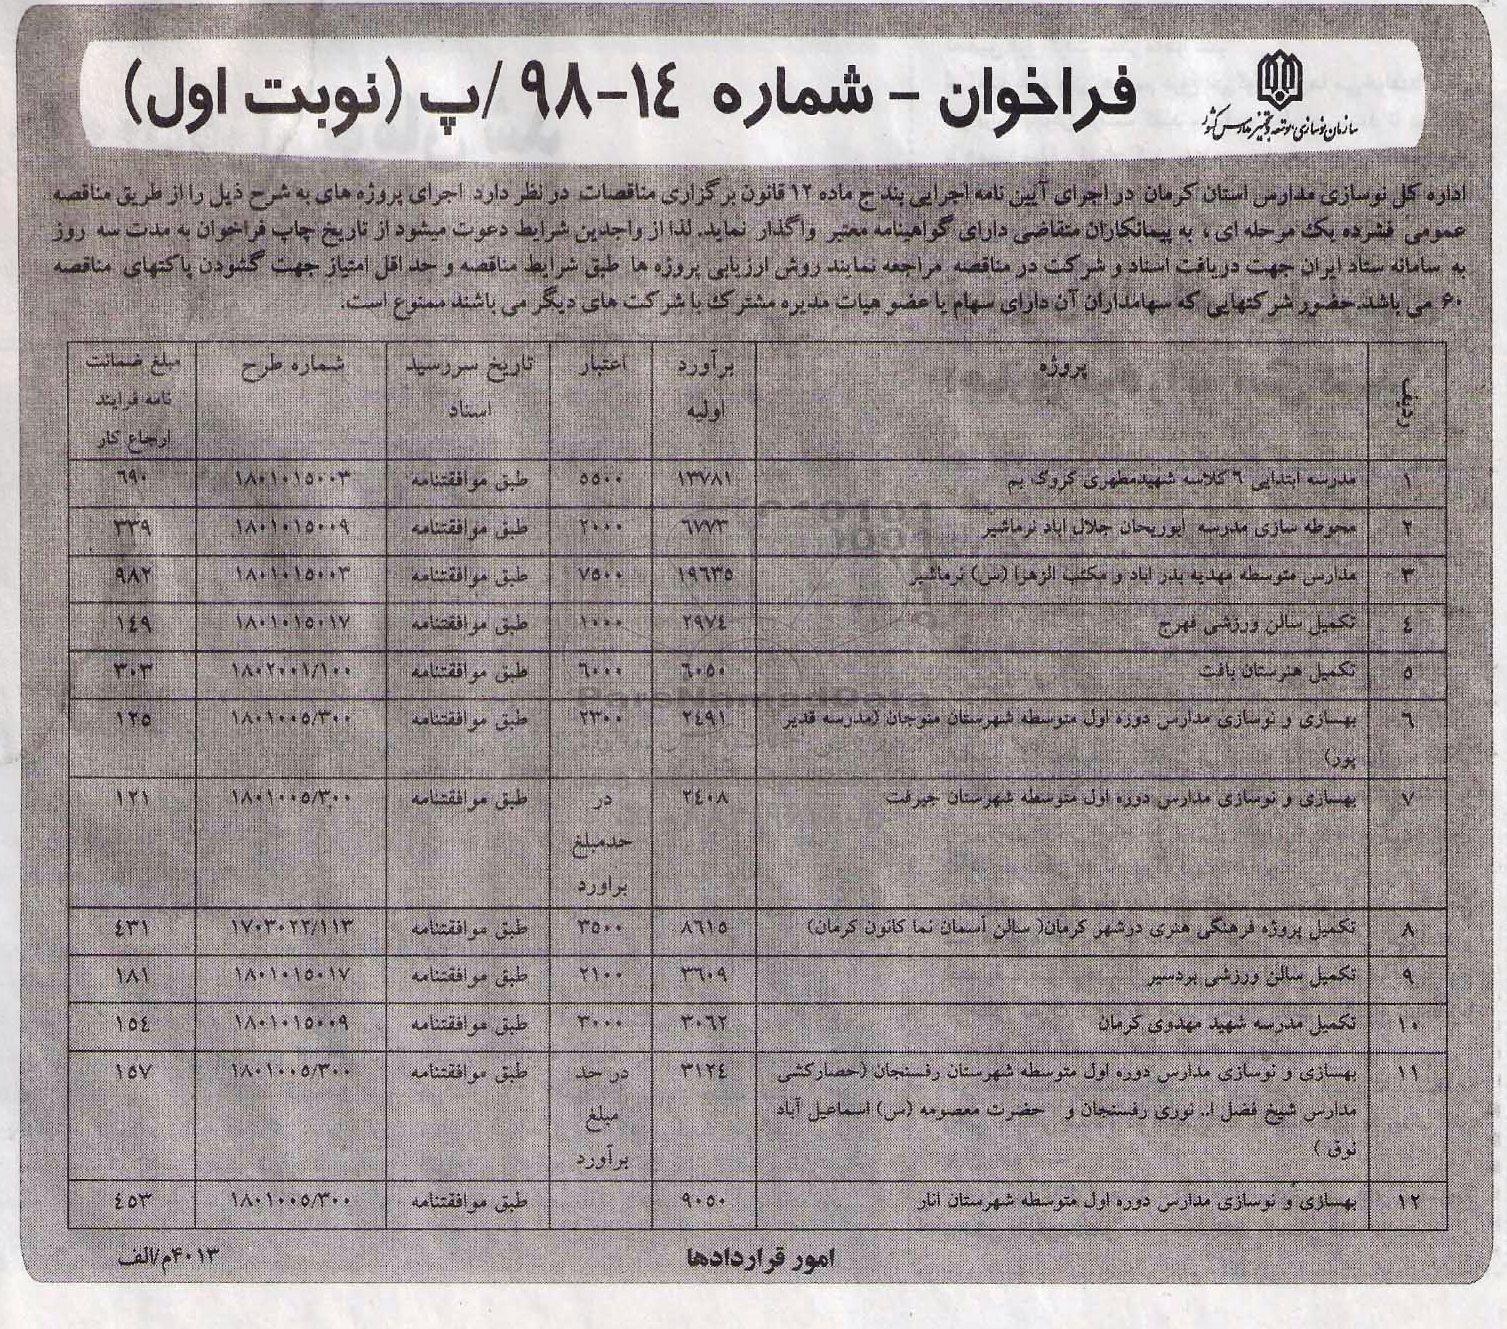 سازمان نوسازی، توسعه و تجهیز مدارس کشور
فراخوان - شماره ۱۴-۹۸ /پ (نوبت اول)
اداره کل نوسازی مدارس استان کرمان در اجرای آیین نامه اجرایی بند ج ماده ۱۲ قانون برگزاری مناقصات در نظر دارد اجرای پروژه های به شرح ذیل را از طریق مناقصه
عمومی فشرده یک مرحله ای ، به پیمانکاران متقاضی دارای گواهینامه معتبر واگذار نماید. لذا از واجدین شرایط دعوت میشود از تاریخ چاپ فراخوان به مدت سه روز
به سامانه ستاد ایران جهت دریافت اسناد و شرکت در مناقصه مراجعه نمایند روش ارزیابی پروژه ها طبق شرایط مناقصه و حد اقل امتیاز جهت گشودن پاکتهای مناقصه
۶۰ می باشد.حضور شرکتهایی که سهامداران آن دارای سهام یا عضو هیات مدیره مشترک با شرکت های دیگر می باشند ممنوع است.
ردیف پروژه برآورد اولیه اعتبار تاریخ سررسید اسناد شماره طرح مبلغ ضمانت نامه فرایند ارجاع کار
۱ مدرسه ابتدایی ۶ کلاسه شهیدمطهری کروک بم ۱۳۷۸۱ ۵۵۰۰ طبق موافقتنامه ۱۸۰۱۰۱۵۰۰۳ ۶۹۰
۲ محوطه سازی مدرسه ابوریحان جلال اباد نرماشیر ۶۷۷۳ ۲۰۰۰ طبق موافقتنامه ۱۸۰۱۰۱۵۰۰۹ ۳۳۹
۳ مدارس متوسطه مهدیه بدر اباد و مکتب الزهرا (س) نرماشیر ۱۹۶۳۵ ۷۵۰۰ طبق موافقتنامه ۱۸۰۱۰۱۵۰۰۳ ۹۸۲
۴ تکمیل سالن ورزشی فهرج ۲۹۷۴ ۱۰۰۰ طبق موافقتنامه ۱۸۰۱۰۱۵۰۱۷ ۱۴۹
۵ تکمیل هنرستان بافت ۶۰۵۰ ۶۰۰۰ طبق موافقتنامه ۱۸۰۲۰۰۱/۱۰۰ ۳۰۳
۶ بهسازی و نوسازی مدارس دوره اول متوسطه شهرستان منوجان (مدرسه قدیر پور) ۲۴۹۱ ۲۳۰۰ طبق موافقتنامه ۱۸۰۱۰۰۵/۳۰۰ ۱۲۵
۷ بهسازی و نوسازی مدارس دوره اول متوسطه شهرستان جیرفت ۲۴۰۸ در حدمبلغ براورد طبق موافقتنامه ۱۸۰۱۰۰۵/۳۰۰ ۱۲۱
۸ تکمیل پروژه فرهنگی هنری درشهر کرمان( سالن آسمان نما کانون کرمان) ۸۶۱۵ ۳۵۰۰ طبق موافقتنامه ۱۷۰۳۰۲۲/۱۱۳ ۴۳۱
۹ تکمیل سالن ورزشی بردسیر ۳۶۰۹ ۲۱۰۰ طبق موافقتنامه ۱۸۰۱۰۱۵۰۱۷ ۱۸۱
۱۰ تکمیل مدرسه شهید مهدوی کرمان ۳۰۶۲ ۳۰۰۰ طبق موافقتنامه ۱۸۰۱۰۱۵۰۰۹ ۱۵۴
۱۱ بهسازی و نوسازی مدارس دوره اول متوسطه شهرستان رفسنجان (حصارکشی مدارس شیخ فضل ا.. نوری رفسنجان و حضرت معصومه (س) اسماعیل آباد نوق ) ۳۱۲۴ در حد مبلغ برآورد طبق موافقتنامه ۱۸۰۱۰۰۵/۳۰۰ ۱۵۷
۱۲ بهسازی و نوسازی مدارس دوره اول متوسطه شهرستان انار ۹۰۵۰ طبق موافقتنامه ۱۸۰۱۰۰۵/۳۰۰ ۴۵۳
امور قراردادها
۴۰۱۳م/الف